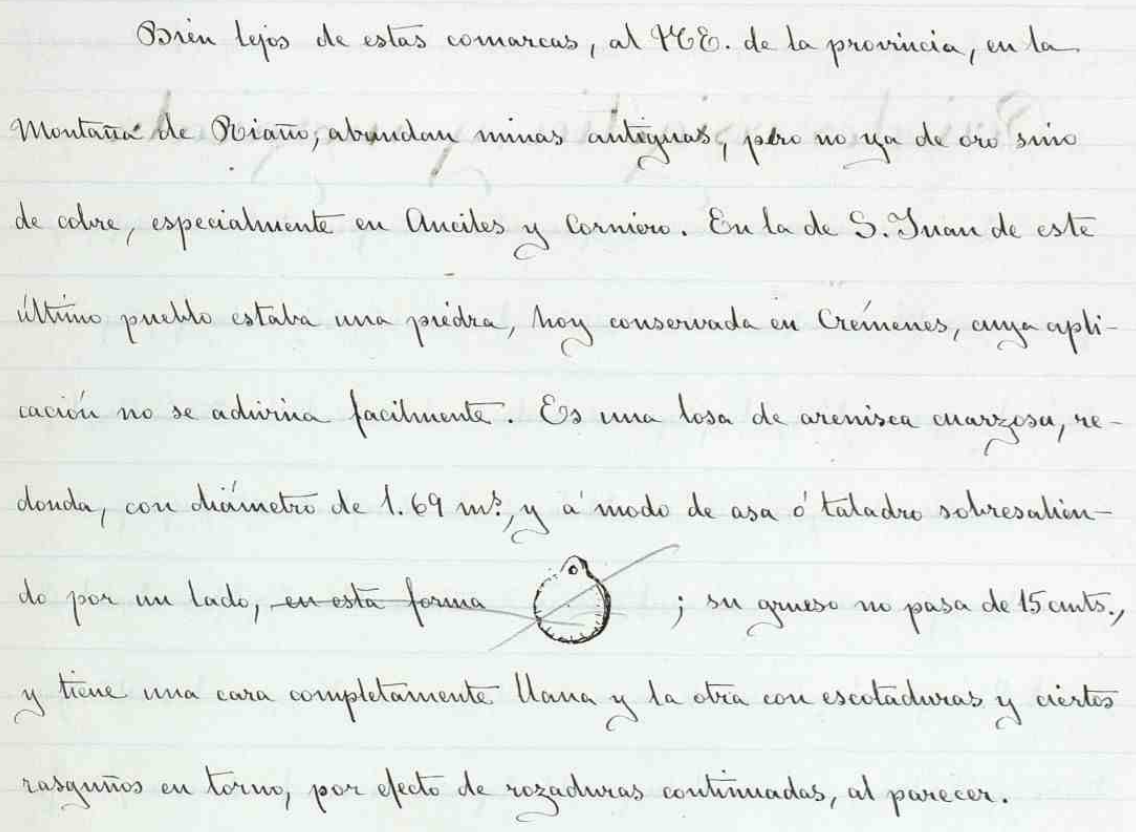 Bien lejos de estas comarcas, al NE. de la provincia, en la
Montaña de Riaño, abundan minas antiguas, pero no ya de oro sino
de cobre, especialmente en Anciles y Corniero. En la de S. Juan de este
último pueblo estaba una piedra, hoy conservada en Crémenes, cuya apli-
cación no se adivina facilmente. Es una losa de arenisca cuarzosa, re-
donda, con diámetro de 1.69 ms., y á modo de asa ó taladro sobresalien-
do por un lado, en esta forma ; su grueso no pasa de 15 cmts.,
y tiene una cara completamente llana y la otra con escotaduras y ciertos
rasguños en torno, por efecto de rozaduras continuadas, al parecer.